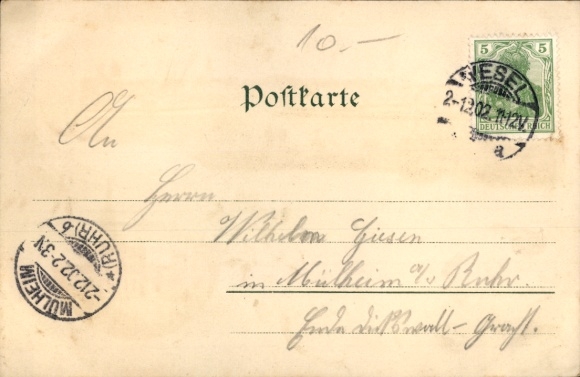 10.-
5 5
DEUTSCHES REICH
WESEL
2-12.02.11-12V.
a
Postkarte
An
Herrn
Wilhelm Giesen
in Mülheim a/d Ruhr.
Ende Dickswall-Gracht.
MÜLHEIM (RUHR) b
-2/12.02.2-3N.